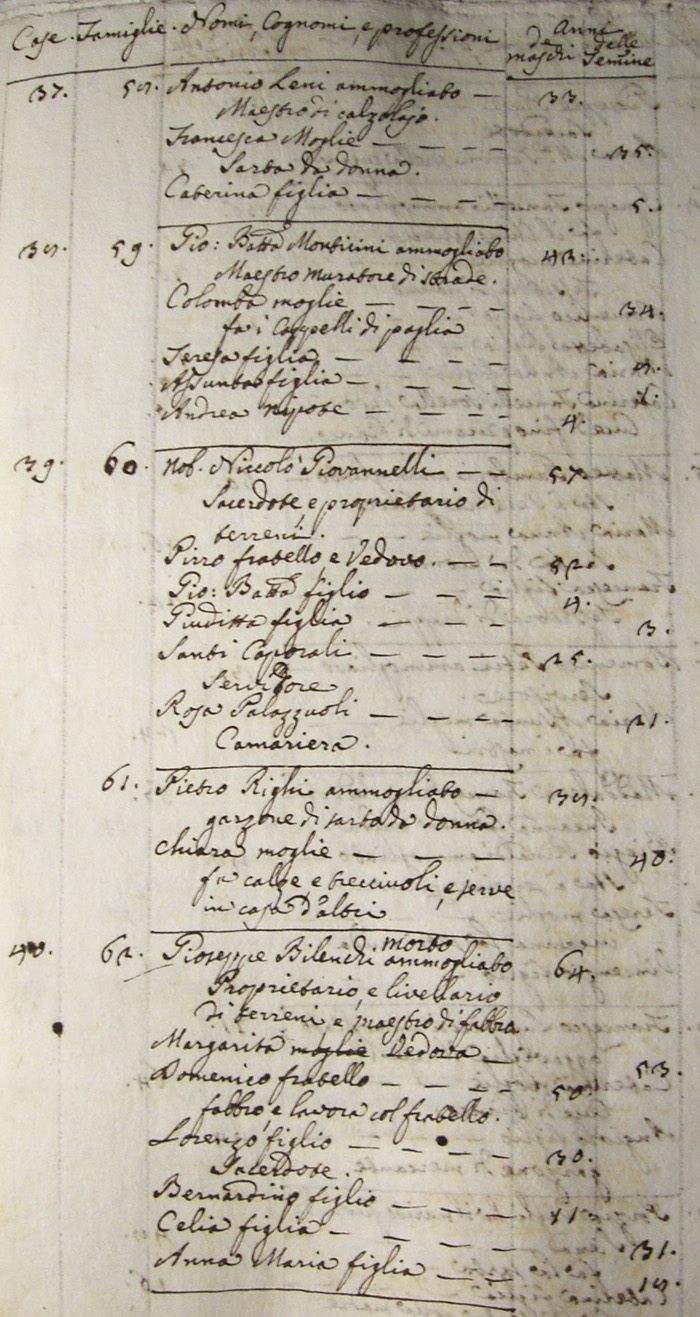 Case. Famiglie. Nomi, Cognomi, e professioni Anni de maschi delle Femine
37. 58. Antonio Leni ammogliato — 33.
Maestro di calzolajo.
Francesca Moglie — — — — 35.
Sarta da donna.
Caterina figlia — — — — 5.
38. 59. Gio: Batta Monticini ammogliato 43.
Maestro muratore di strade.
Colomba moglie — — — — 34.
fa i Cappelli di paglia
Teresa figlia — — — — 8.
Assunta figlia — — — —
Andrea nipote — — — — 4.
39. 60. Nob. Niccolò Giovannelli — — 57.
Sacerdote, e proprietario di
terreni.
Pirro fratello, e Vedovo. — — 52.
Gio: Batta figlio — — — 4.
Giuditta figlia — — — 3.
Santi Caporali — — — 25.
Servitore
Rosa Palazzuoli — — — — 21.
Camariera.
61. Pietro Righi ammogliato — 38.
garzone di sarto da donna.
Chiara moglie — — — 40.
fa calze e treccivoli, e serve
in casa d'altri
morto
40. 62. Gioseppe Bilenchi ammogliato 64.
Proprietario, e livellario
di terreni e maestro di fabbro.
Margarita moglie Vedova — 53.
Domenico fratello — — — — 50.
fabbro, e lavora col fratello.
Lorenzo figlio — — — — 30.
Sacerdote.
Bernardino figlio — — — 11.
Celia figlia — — — — 31.
Anna Maria figlia — — 18.